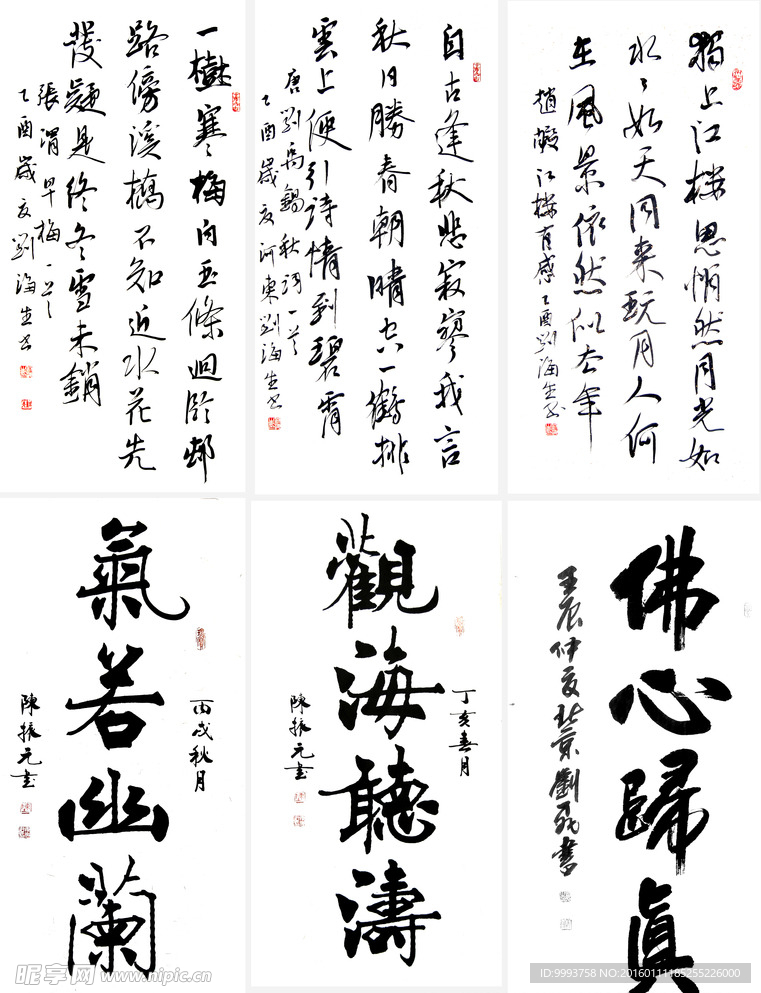 一樹寒梅白玉條迴臨邨
路傍溪橋不知近水花先
發疑是終冬雪未銷
張渭早梅一首
乙酉歲夏劉海生书
自古逢秋悲寂寥我言
秋日勝春朝晴空一鶴排
雲上便引詩情到碧霄
唐劉禹錫秋詞一首
乙酉歲夏河東劉海生书
獨上江樓思悄然月光如
水々如天同來玩月人何
在風景依然似去年
趙嘏江樓有感乙酉劉海生书
丙戌秋月
氣若幽蘭
陳振元書
丁亥春月
觀海聽濤
陳振元書
佛心歸眞
壬辰仲夏北京劉書
昵享网 www.nipic.cn
ID:9993758 NO:20160111185255226000